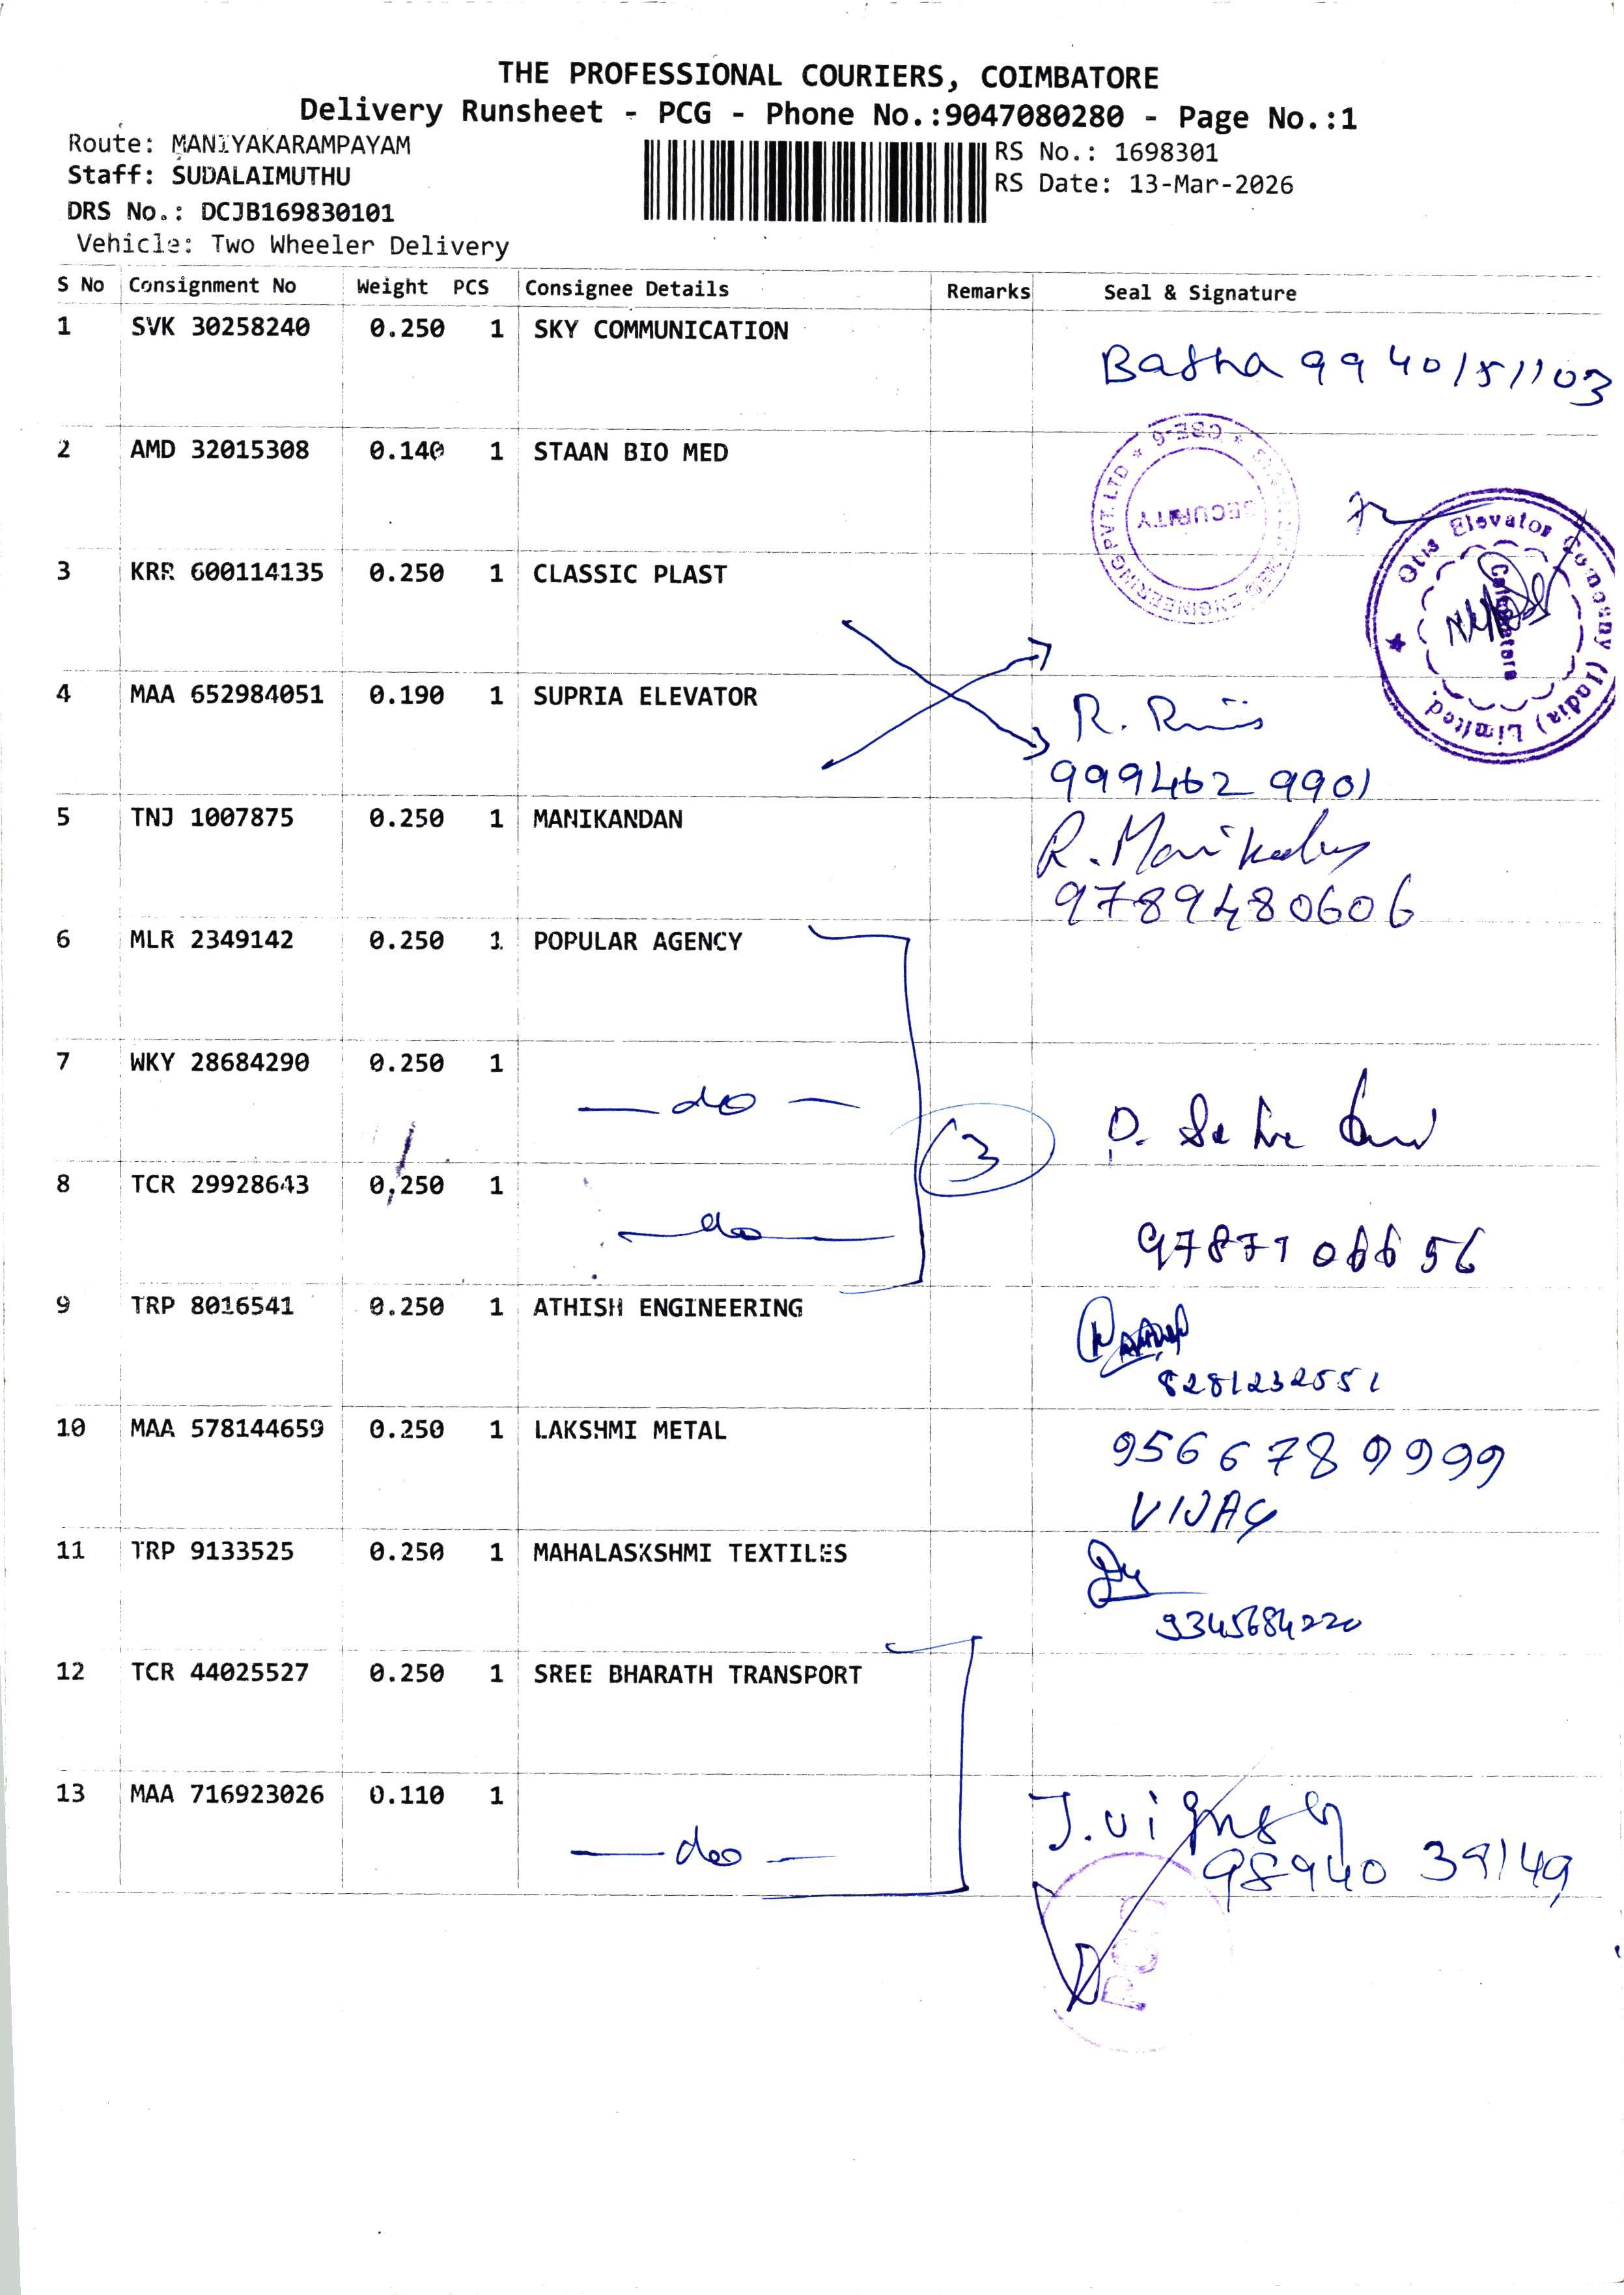 THE PROFESSIONAL COURIERS, COIMBATORE
Delivery Runsheet - PCG - Phone No.:9047080280 - Page No.:1
Route: MANIYAKARAMPAYAM
Staff: SUDALAIMUTHU
DRS No.: DCJB169830101
Vehicle: Two Wheeler Delivery
RS No.: 1698301
RS Date: 13-Mar-2026
S No Consignment No Weight PCS Consignee Details Remarks Seal & Signature
1 SVK 30258240 0.250 1 SKY COMMUNICATION
Basha 9940151103
2 AMD 32015308 0.140 1 STAAN BIO MED
ENGINEERING PVT. LTD * CBE-6 *
SECURITY
Otis Elevator Company (India) Limited.
Coimbatore
3 KRR 600114135 0.250 1 CLASSIC PLAST
4 MAA 652984051 0.190 1 SUPRIA ELEVATOR
R.
9994629901
5 TNJ 1007875 0.250 1 MANIKANDAN
R. Manikandan
9789480606
6 MLR 2349142 0.250 1 POPULAR AGENCY
7 WKY 28684290 0.250 1
— do —
3
8 TCR 29928643 0.250 1
— do —
9787106656
9 TRP 8016541 0.250 1 ATHISH ENGINEERING
8281232551
10 MAA 578144659 0.250 1 LAKSHMI METAL
9566789999
VIJAY
11 TRP 9133525 0.250 1 MAHALASKSHMI TEXTILES
9345684220
12 TCR 44025527 0.250 1 SREE BHARATH TRANSPORT
13 MAA 716923026 0.110 1
— do —
J. Vignesh
98940 39149
PCG